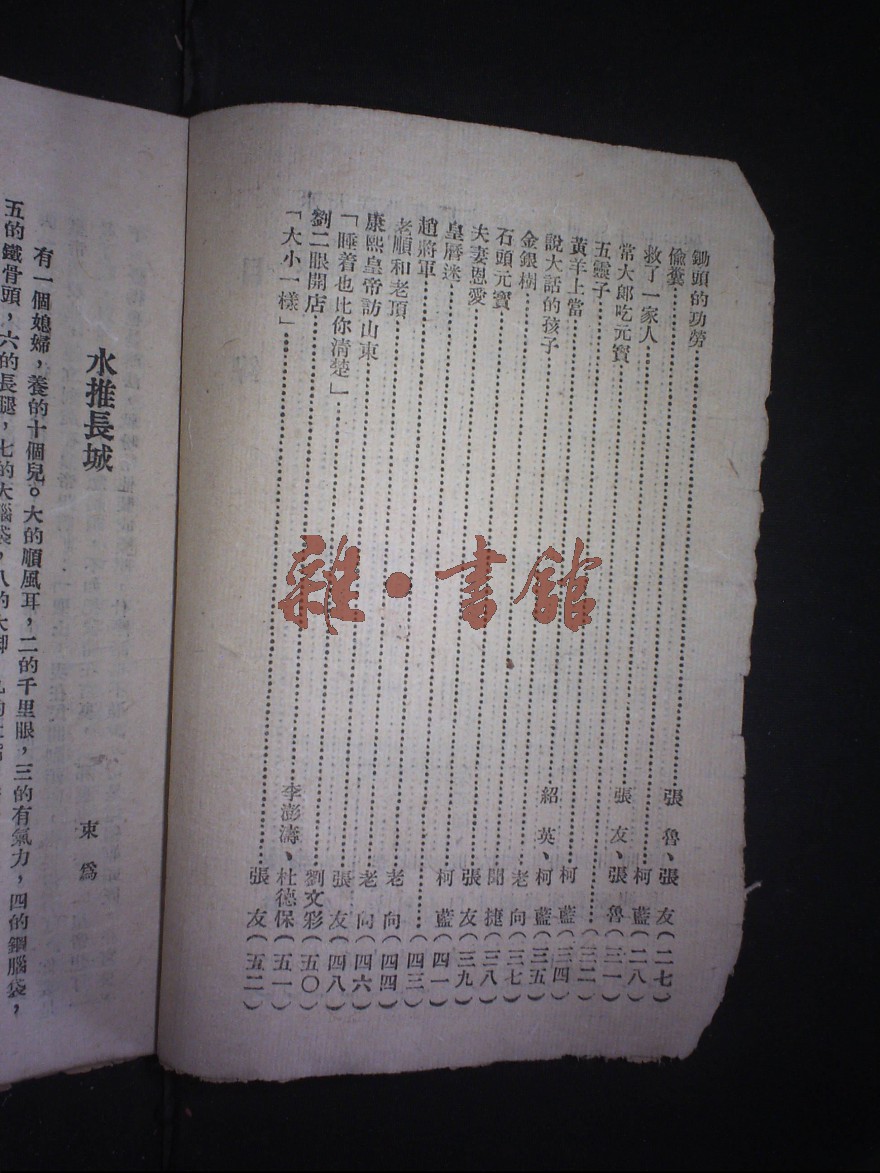 鋤頭的功勞⋯⋯張　魯、張　友(二七)
偷糞⋯⋯柯　藍(二八)
救了一家人⋯⋯張　友、張　魯(三一)
常大郎吃元寶⋯⋯(三二)
五靈子⋯⋯柯　藍(三四)
黃羊上當⋯⋯紹　英、柯　藍(三五)
說大話的孩子⋯⋯老　向(三七)
金銀樹⋯⋯聞　捷(三八)
石頭元寶⋯⋯張　友(三九)
夫妻恩愛⋯⋯柯　藍(四一)
皇曆迷⋯⋯(四三)
趙將軍⋯⋯老　向(四四)
老順和老頂⋯⋯老　向(四六)
康熙皇帝訪山東⋯⋯張　友(四八)
「睡着也比你清楚」⋯⋯劉文彩(五〇)
劉二眼開店⋯⋯李澎濤、杜德保(五一)
「大小一樣」⋯⋯張　友(五二)
雜·書館
水推長城
束　爲
有一個媳婦，養的十個兒。大的順風耳，二的千里眼，三的有氣力，四的鋼腦袋，
五的鐵骨頭，六的長腿，七的大腦袋，八的大脚